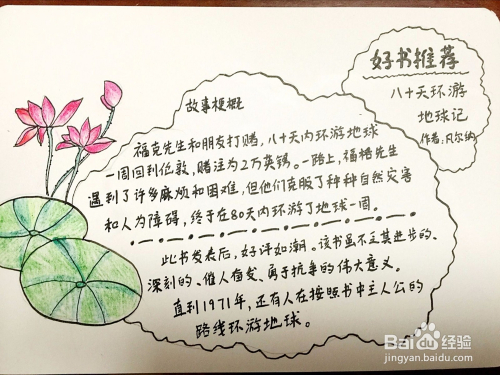 好书推荐
八十天环游
地球记
作者:凡尔纳
故事梗概
福克先生和朋友打赌,八十天内环游地球
一周回到伦敦,赌注为2万英镑。一路上,福格先生
遇到了许多麻烦和困难,但他们克服了种种自然灾害
和人为障碍,终于在80天内环游了地球一周。
此书发表后,好评如潮。该书虽不乏其进步的、
深刻的、催人奋发、勇于抗争的伟大意义。
直到1971年,还有人在按照书中主人公的
路线环游地球。
Baidu经验
jingyan.baidu.com